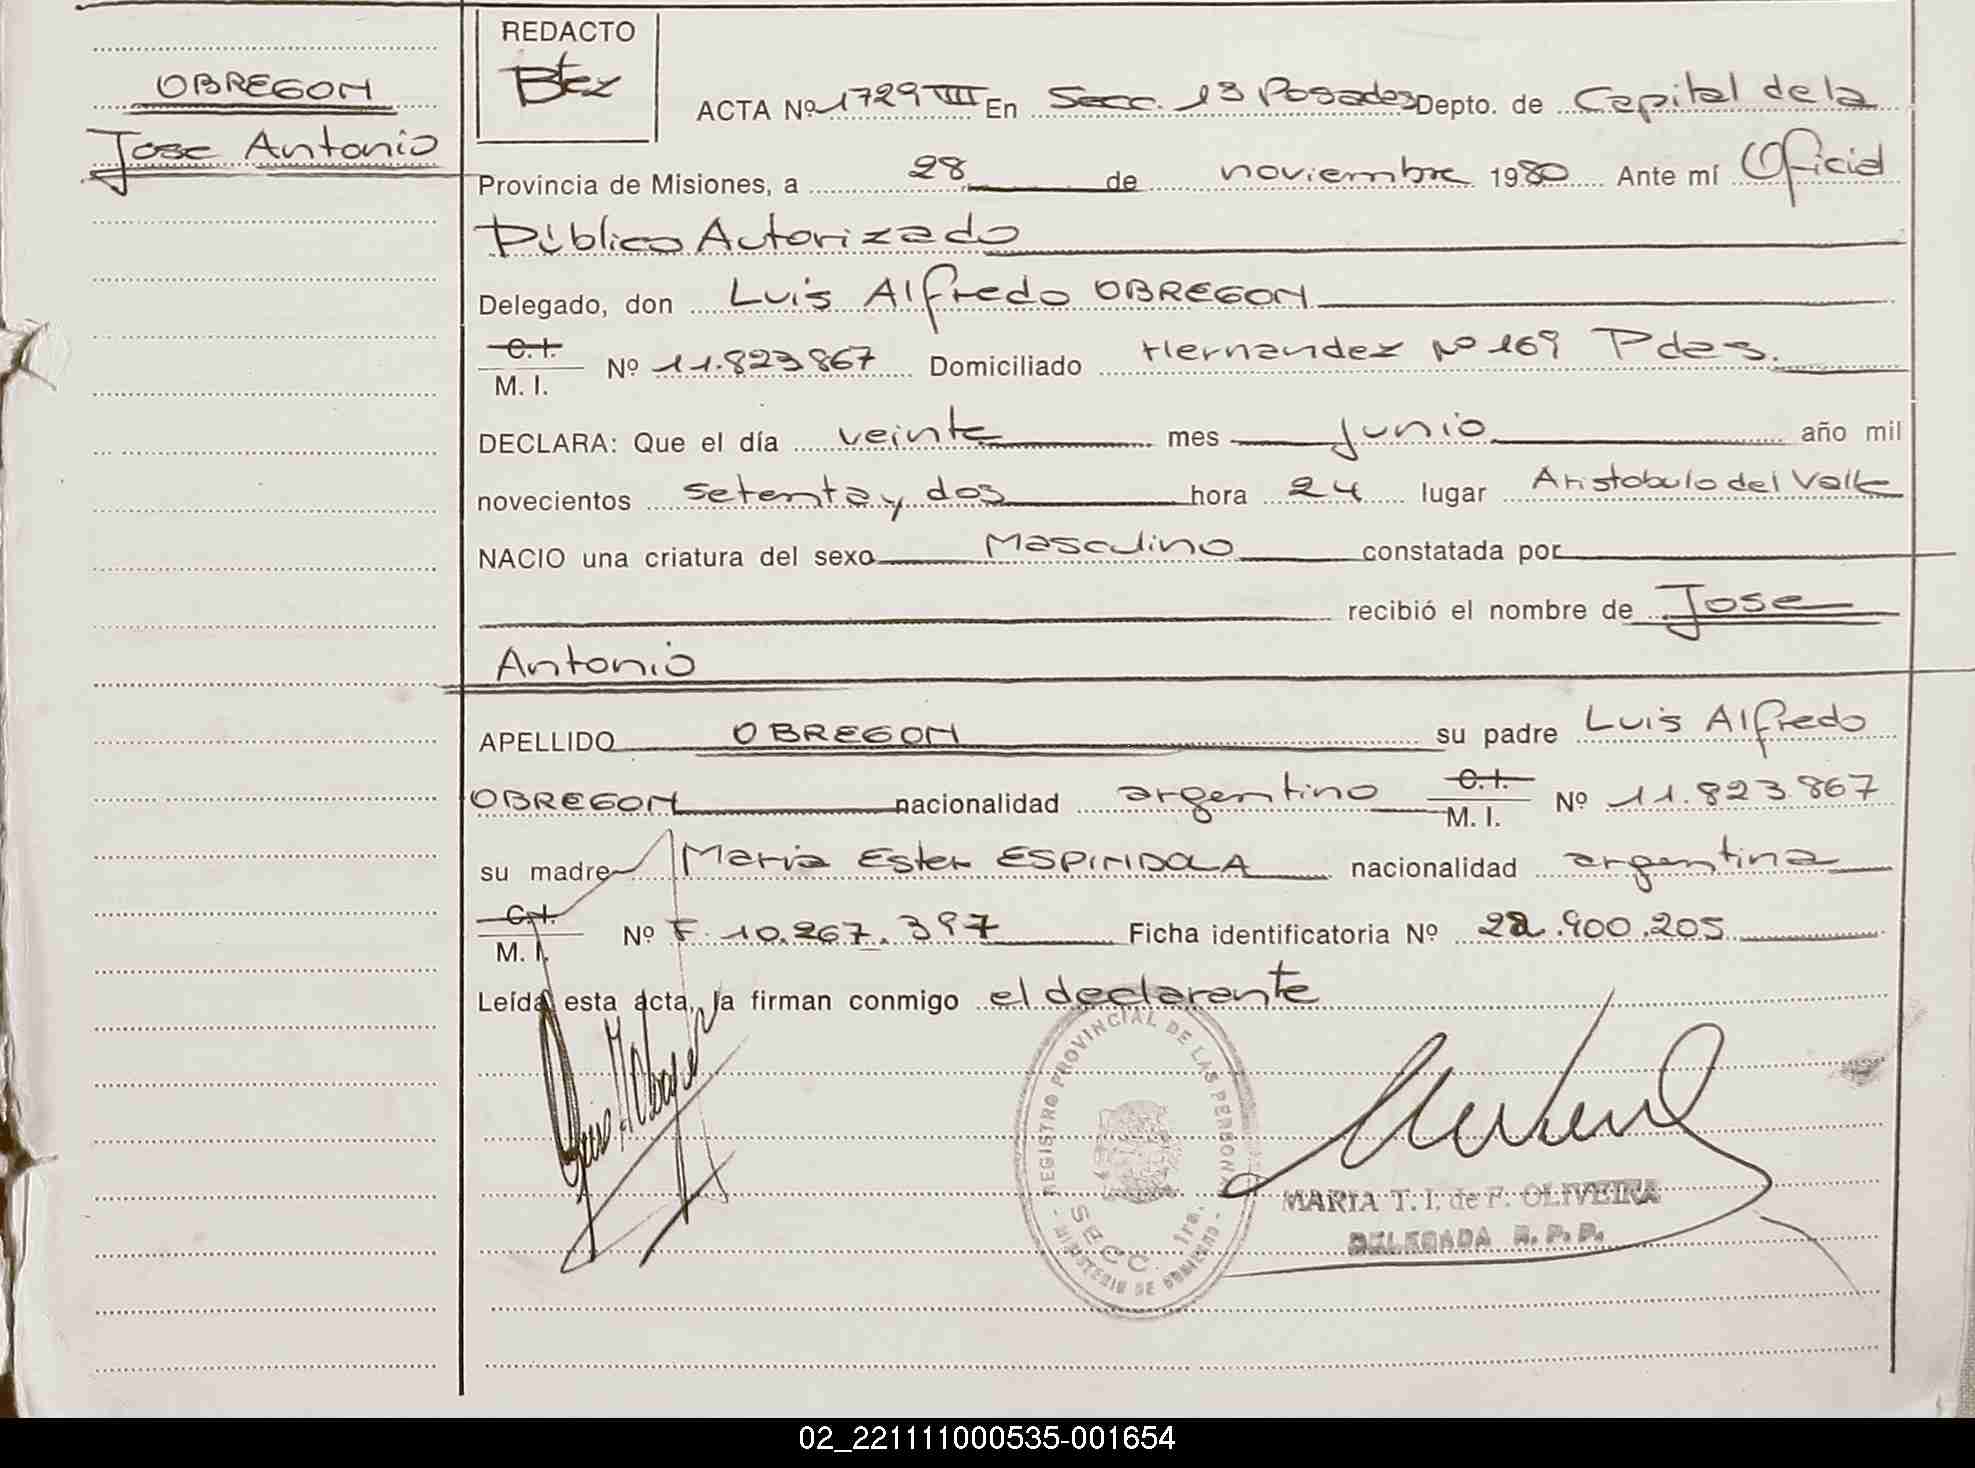 OBREGON
Jose Antonio
REDACTO
Btez
ACTA Nº 1729 VIII En Secc. 1ª Posadas Depto. de Capital de la
Provincia de Misiones, a 28 de noviembre 1980 Ante mí Oficial
Público Autorizado
Delegado, don Luis Alfredo OBREGON
C. I.
M. I. Nº 11.823.867 Domiciliado Hernandez Nº 169 Pdas.
DECLARA: Que el día veinte mes junio año mil
novecientos setenta y dos hora 24 lugar Aristobulo del Valle
NACIO una criatura del sexo Masculino constatada por
recibió el nombre de Jose
Antonio
APELLIDO OBREGON su padre Luis Alfredo
OBREGON nacionalidad argentino C. I.
M. I. Nº 11.823.867
su madre Maria Ester ESPINDOLA nacionalidad argentina
C. I.
M. I. Nº F. 10.267.397 Ficha identificatoria Nº 22.900.205
Leída esta acta, la firman conmigo el declarante
REGISTRO PROVINCIAL DE LAS PERSONAS
SECC. 1ra.
- MINISTERIO DE GOBIERNO -
MARIA T. I. de F. OLIVEIRA
DELEGADA R. P. P.
02_221111000535-001654